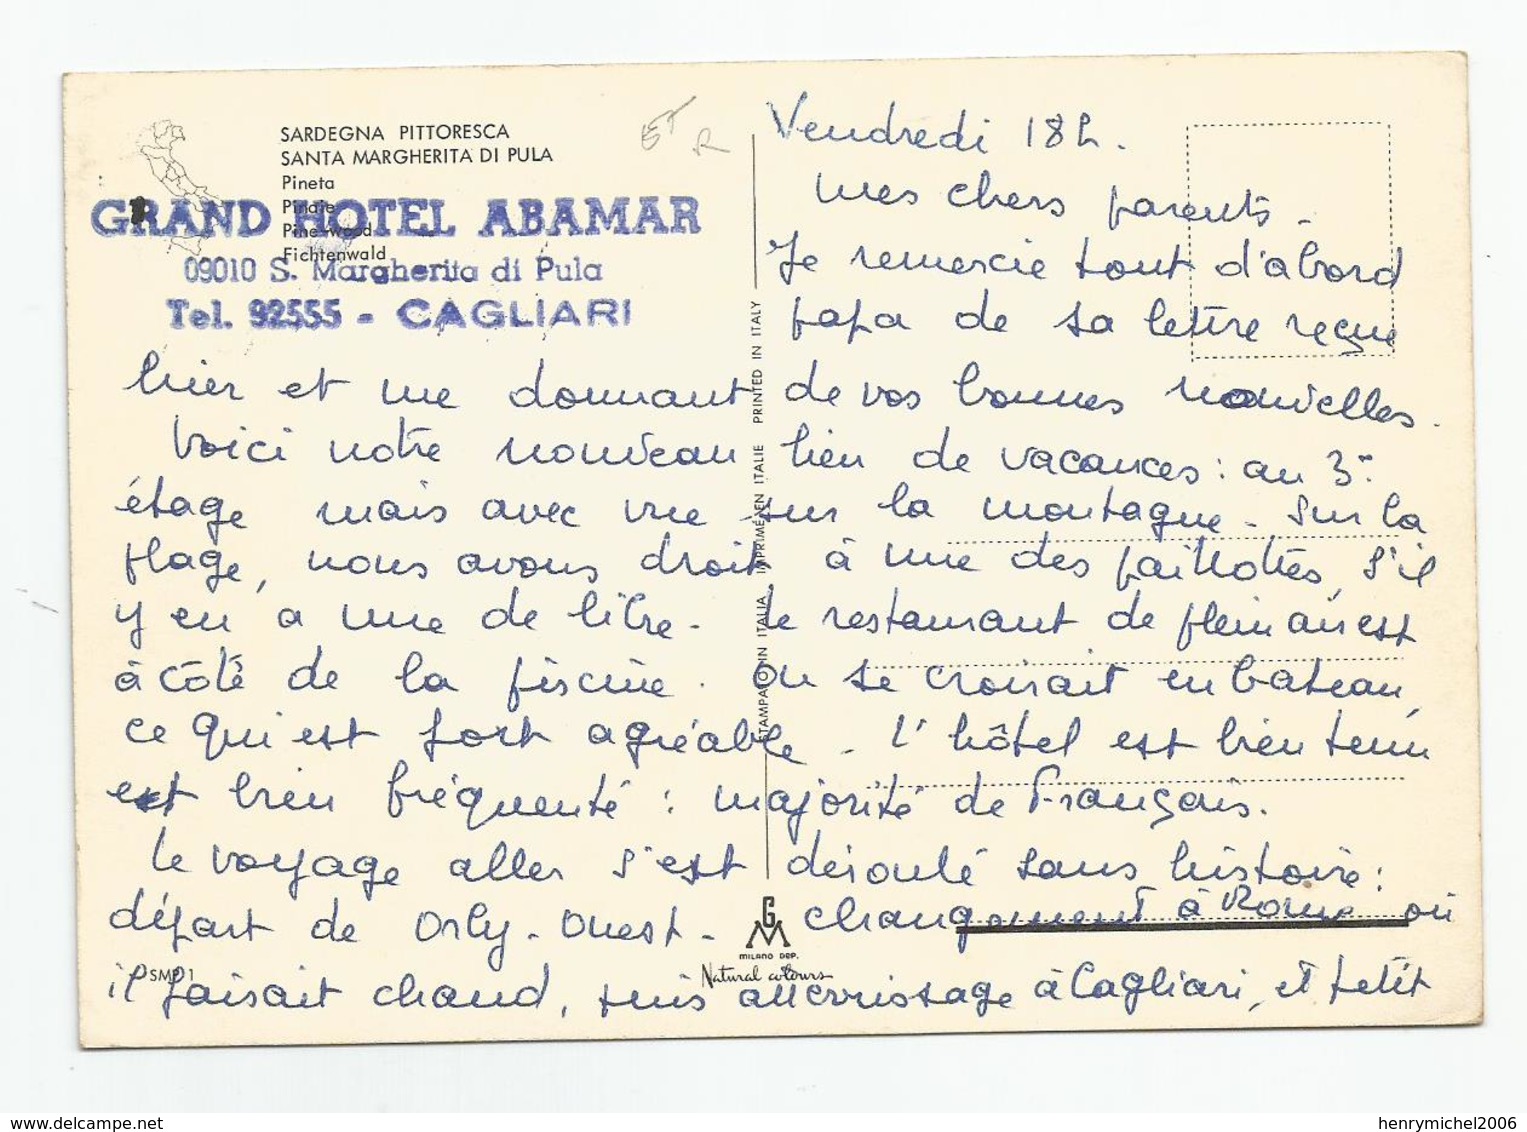 SARDEGNA PITTORESCA
SANTA MARGHERITA DI PULA
Pineta
Pinaie
Pine-wood
Fichtenwald
GRAND HOTEL ABAMAR
09010 S. Margherita di Pula
Tel. 92555 - CAGLIARI
Vendredi 18h.
Mes chers parents -
Je remercie tout d'abord
papa de sa lettre reçue
hier et me donnant de vos bonnes nouvelles.
Voici notre nouveau lieu de vacances : au 3e
étage mais avec vue sur la montagne - Sur la
plage, nous avons droit à une des paillottes, s'il
y en a une de libre - Le restaurant de plein air est
à côté de la piscine. On se croirait en bateau,
ce qui est fort agréable - L'hôtel est bien tenu
est bien fréquenté : majorité de Français.
Le voyage aller s'est déroulé sans histoire :
départ de Orly-Ouest - changement à Rome où
il faisait chaud, puis atterrissage à Cagliari, et petit
STAMPATO IN ITALIA IMPRIMÉ EN ITALIE PRINTED IN ITALY
GM
MILANO DEP.
Natural colours
SMP 1
ET R
delcampe.net
henrymichel2006